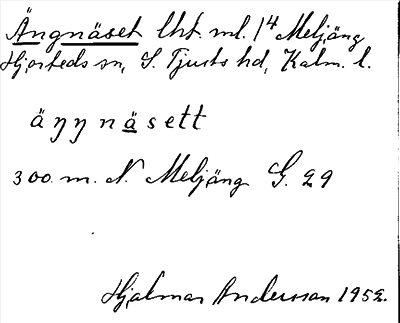 Ängnäset lht. ml. 1⁴ Meljäng
Hjorteds sn, S. Tjusts hd, Kalm. l.
äŋŋnäsett
300 m. N. Meljäng G. 29
Hjalmar Andersson 1952.